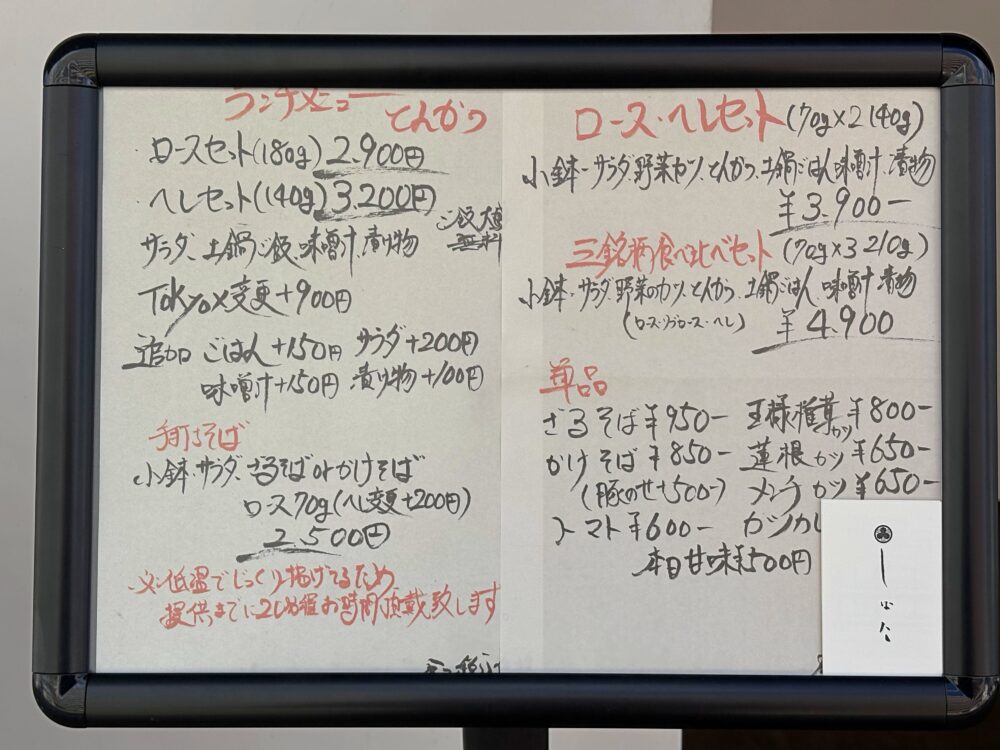 ランチメニュー
とんかつ
ロースセット(180g) 2.900円
ヘレセット(140g) 3.200円
サラダ、土鍋ご飯、味噌汁、漬け物
ご飯大盛
無料
TOKYOX変更+900円
追加 ごはん+150円 サラダ+200円
味噌汁+150円 漬け物+100円
手打そば
小鉢・サラダ、ざるそばorかけそば
ロース70g(ヘレ変更+200円)
2.500円
※低温でじっくり揚げてるため
提供までに20分程お時間頂戴致します
ロース・ヘレセット(70g×2 140g)
小鉢・サラダ、野菜カツ、とんかつ、土鍋ごはん、味噌汁、漬物
¥3.900-
三銘柄食べ比べセット(70g×3 210g)
小鉢・サラダ、野菜のカツ、とんかつ、土鍋ごはん、味噌汁、漬物
(ロース・リブロース・ヘレ) ¥4.900
単品
ざるそば¥950- 王様椎茸カツ¥800-
かけそば¥850- 蓮根カツ¥650-
(豚のせ+500-) メンチカツ¥650-
トマト¥600- カツカレ
本日甘味¥500円